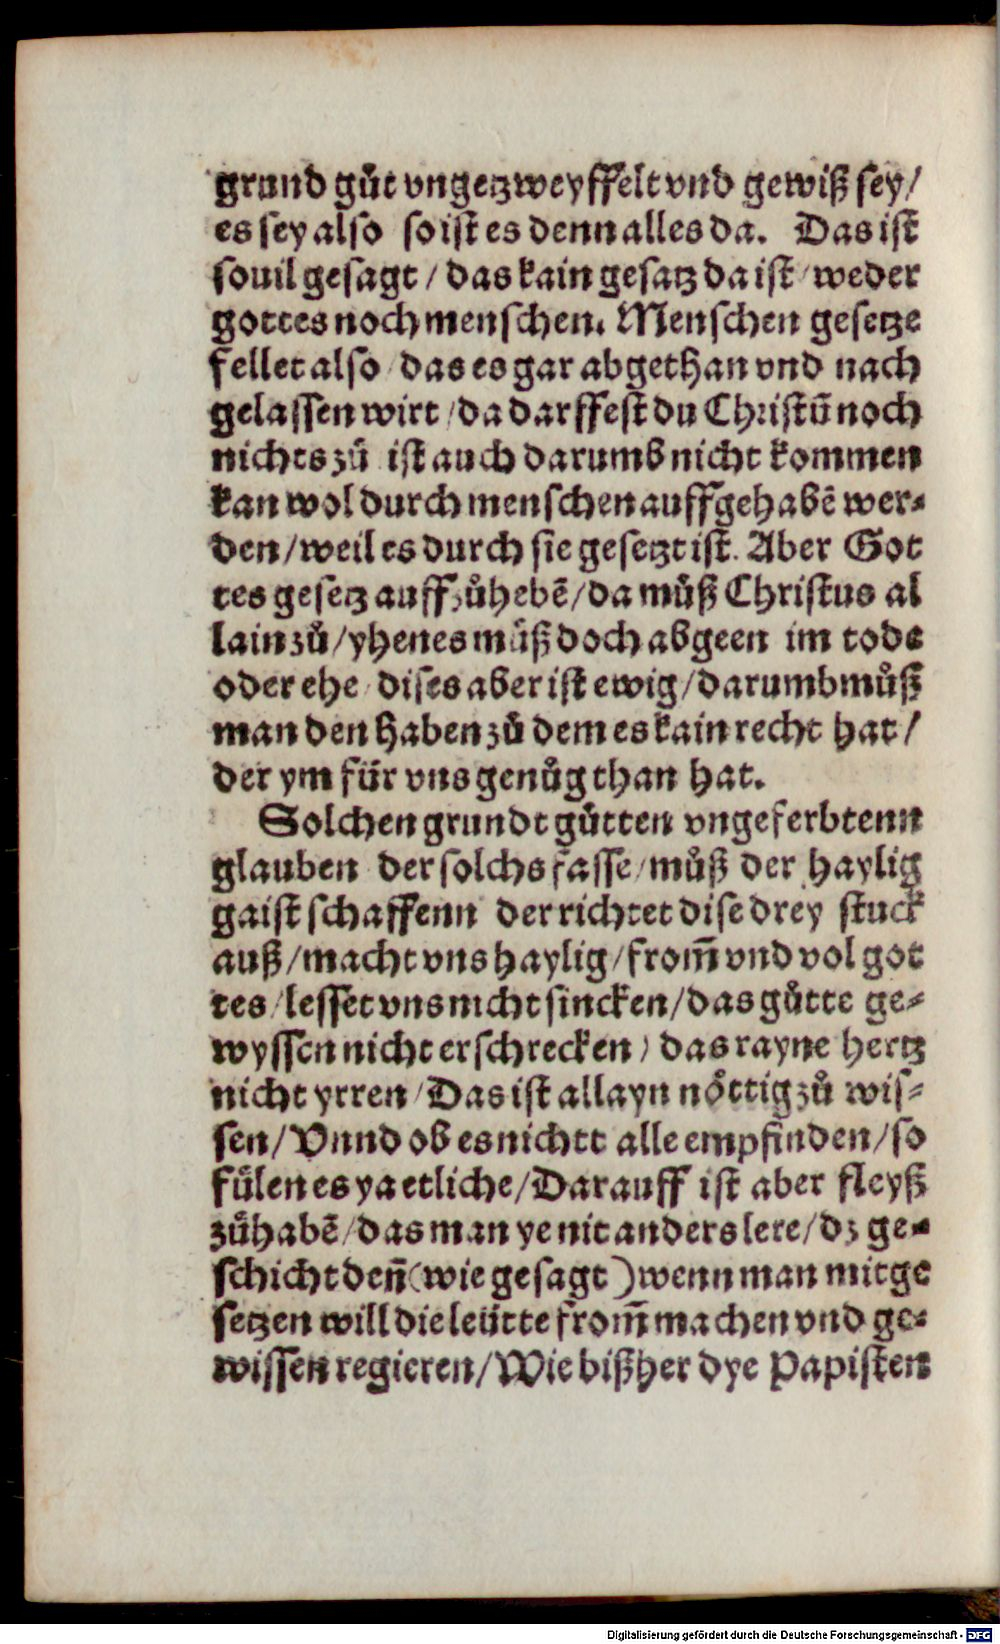 grund gůt vngetzweyffelt vnd gewiß sey/
es sey also so ist es denn alles da. Das ist
souil gesagt / das kain gesatz da ist / weder
gottes noch menschen. Menschen gesetze
fellet also / das es gar abgethan vnd nach
gelassen wirt / da darffest du Christū noch
nichts zů ist auch darumb nicht kommen
kan wol durch menschen auffgehabē wer⸗
den / weil es durch sie gesetzt ist. Aber Got
tes gesetz auffzůhebē / da můß Christus al
lain zů / yhenes můß doch abgeen im tode
oder ehe / dises aber ist ewig / darumb můß
man den haben zů dem es kain recht hat /
der ym für vns genůg than hat.
Solchen grundt gůtten vngeferbtenn
glauben der solchs fasse / můß der haylig
gaist schaffenn der richtet dise drey stuck
auß / macht vns haylig / from̄ vnd vol got
tes / lesset vns nicht sincken / das gůtte ge⸗
wyssen nicht erschrecken / das rayne hertz
nicht yrren / Das ist allayn nöttig zů wis⸗
sen / Vnnd ob es nichtt alle empfinden / so
fülen es ya etliche / Darauff ist aber fleyß
zůhabē / das man ye nit anders lere / dz ge⸗
schicht deñ (wie gesagt) wenn man mit ge
setzen will die leütte from̄ machen vnd ge⸗
wissen regieren / Wie bißher dye Papisten
Digitalisierung gefördert durch die Deutsche Forschungsgemeinschaft - DFG